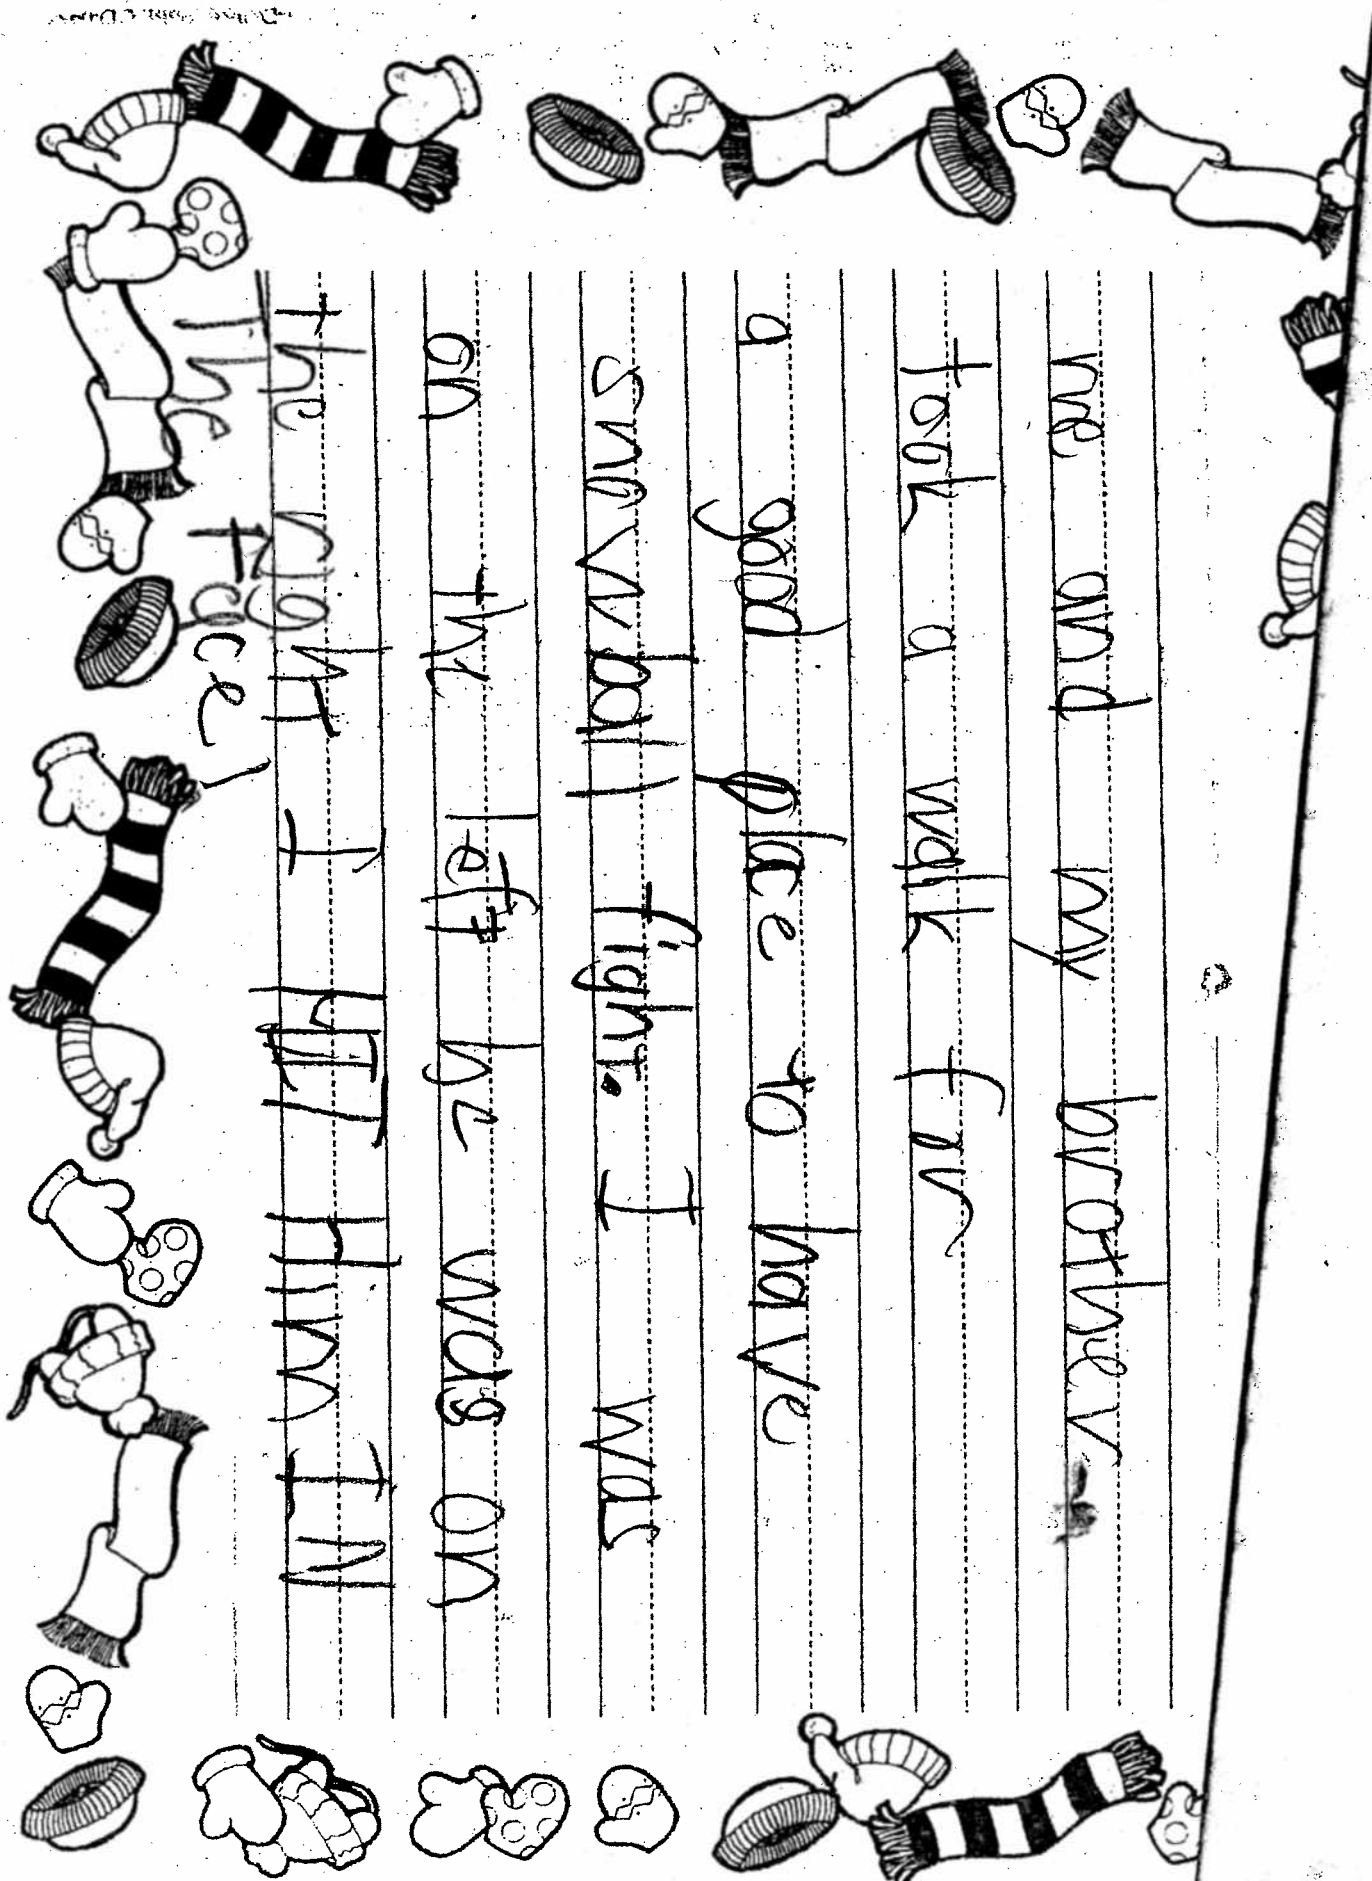 me and my brother
took a walk fer
a good place to have
snowball fight. I was
on the left he was on
the right I HIT Him IN
The face